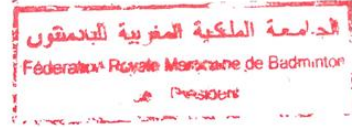 الجامعة الملكية المغربية للبادمنتون
Féderation Royale Marocaine de Badminton
President